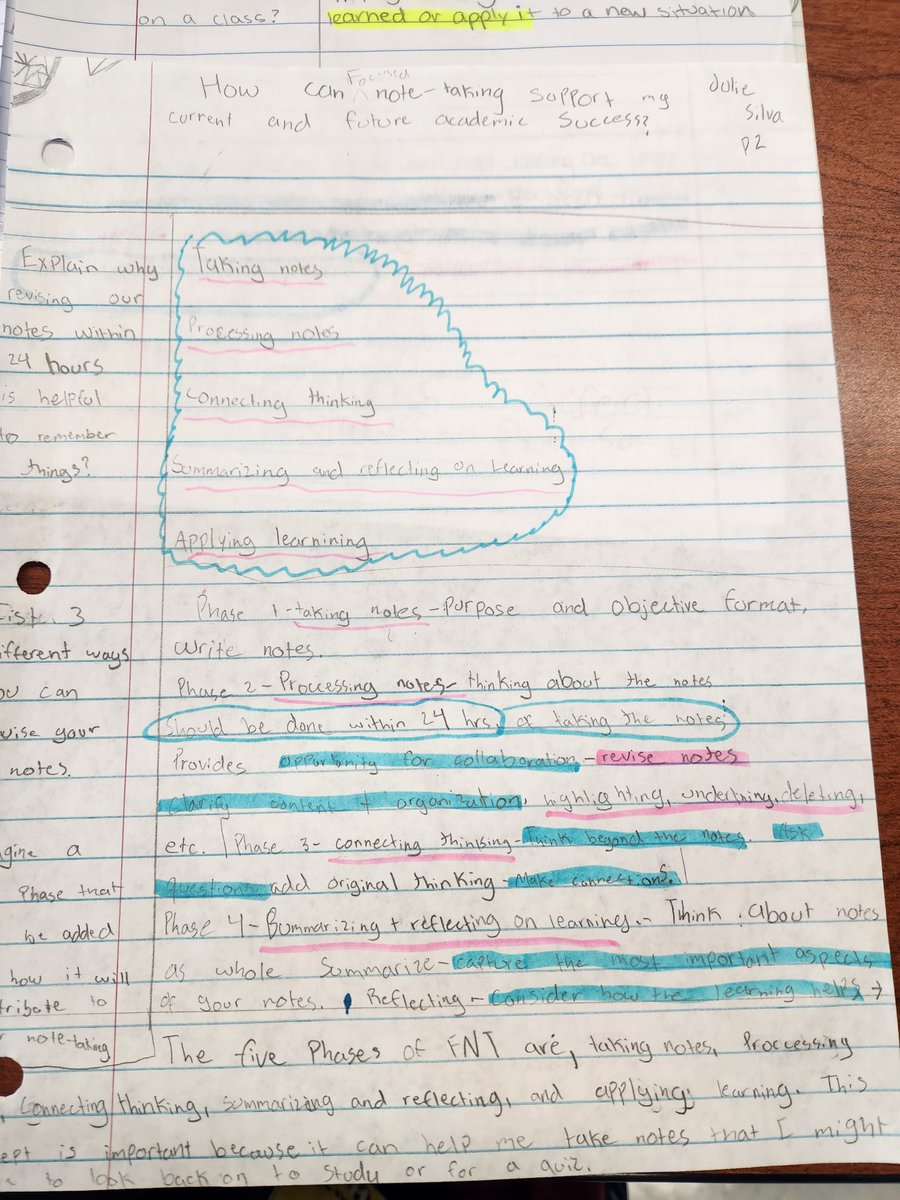 on a class?
learned or apply it to a new situation
How can Focused note-taking support my
current and future academic success?
Julie
Silva
P2
Explain why
revising our
notes within
24 hours
is helpful
to remember
things?
Taking notes
Processing notes
Connecting thinking
Summarizing and reflecting on learning
Applying learnining
List 3
ifferent ways
ou can
vise your
notes.
gine a
Phase that
be added
how it will
tribute to
note-taking
Phase 1-taking notes-purpose and objective format,
write notes.
Phase 2-Proccessing notes-thinking about the notes
should be done within 24 hrs, of taking the notes;
Provides opportunity for collaboration-revise notes
clarify content + organization, highlighting, underlining, deleting,
etc. Phase 3- connecting thinking-Think beyond the notes. Ask
Questions add original thinking-Make connections.
Phase 4-Summarizing + reflecting on learning.- Think about notes
as whole Summarize-capture the most important aspects
of your notes. Reflecting-Consider how the learning helps →
The five Phases of FNT are, taking notes, Proccessing
, Connecting thinking, summarizing and reflecting, and applying learning. This
ept is important because it can help me take notes that I might
to look back on to study or for a quiz.